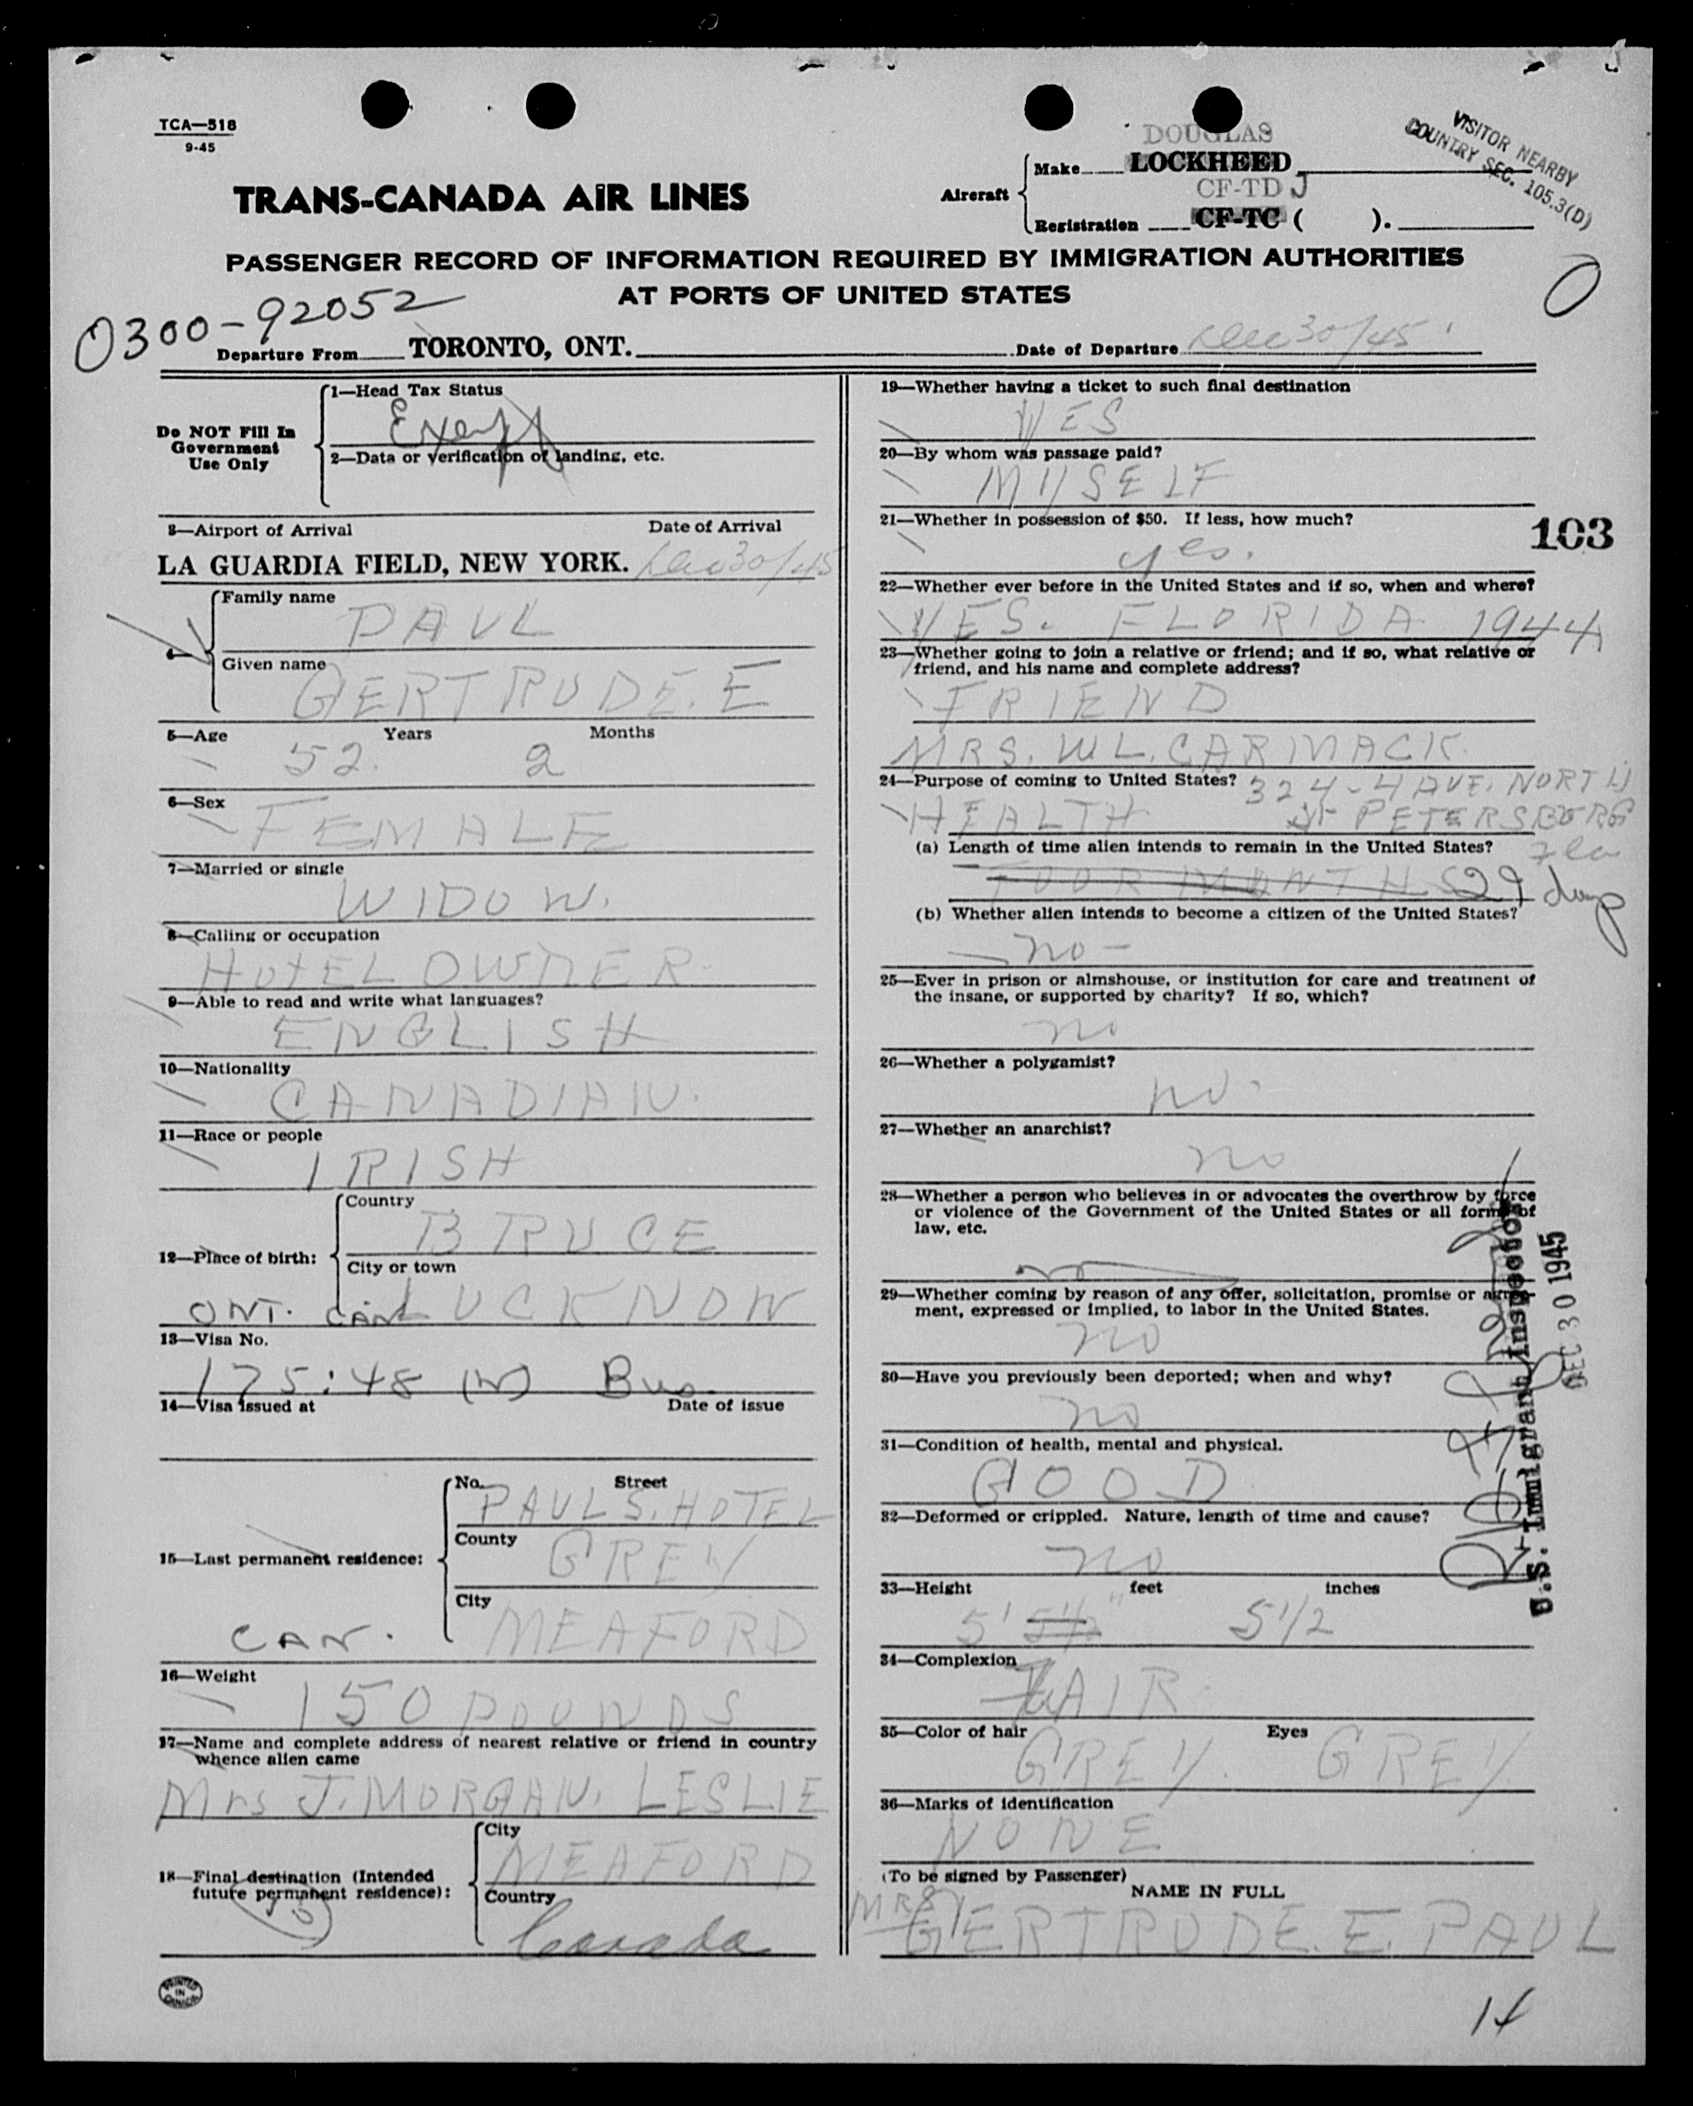 TCA—518
9-45
DOUGLAS
Aircraft
Make LOCKHEED
CF-TD J
Registration CF-TC ( ).
VISITOR NEARBY
COUNTRY SEC. 105.3(D)
TRANS-CANADA AIR LINES
PASSENGER RECORD OF INFORMATION REQUIRED BY IMMIGRATION AUTHORITIES
AT PORTS OF UNITED STATES
0
0300-92052
Departure From TORONTO, ONT. Date of Departure Dec 30/45
Do NOT Fill In
Government
Use Only
1—Head Tax Status
Exempt
2—Data or verification of landing, etc.
3—Airport of Arrival Date of Arrival
LA GUARDIA FIELD, NEW YORK. Dec 30/45
4—
Family name
PAUL
Given name
GERTRUDE. E
5—Age Years Months
52. 2
6—Sex
FEMALE
7—Married or single
WIDOW.
8—Calling or occupation
HOTEL OWNER.
9—Able to read and write what languages?
ENGLISH
10—Nationality
CANADIAN.
11—Race or people
IRISH
12—Place of birth:
Country
BRUCE
City or town
ONT. CAN LUCKNOW
13—Visa No.
175:48 Bus
14—Visa issued at Date of issue
15—Last permanent residence:
No. Street
PAULS. HOTEL
County
GREY
City
CAN. MEAFORD
16—Weight
150 POUNDS
17—Name and complete address of nearest relative or friend in country
whence alien came
Mrs J. MORGAN. LESLIE
18—Final destination (Intended
future permanent residence):
City
MEAFORD
Country
Canada
PRINTED
IN
CANADA
19—Whether having a ticket to such final destination
YES
20—By whom was passage paid?
MYSELF
21—Whether in possession of $50. If less, how much?
yes.
103
22—Whether ever before in the United States and if so, when and where?
YES. FLORIDA 1944
23—Whether going to join a relative or friend; and if so, what relative or
friend, and his name and complete address?
FRIEND
MRS. W L. CARMACK.
24—Purpose of coming to United States? 324-4 AVE. NORTH
HEALTH ST PETERSBURG
(a) Length of time alien intends to remain in the United States? Fla
FOUR MONTHS 29 days
(b) Whether alien intends to become a citizen of the United States?
no —
25—Ever in prison or almshouse, or institution for care and treatment of
the insane, or supported by charity? If so, which?
no
26—Whether a polygamist?
no.
27—Whether an anarchist?
no
28—Whether a person who believes in or advocates the overthrow by force
or violence of the Government of the United States or all forms of
law, etc.
no
29—Whether coming by reason of any offer, solicitation, promise or agree-
ment, expressed or implied, to labor in the United States.
no
30—Have you previously been deported; when and why?
no
31—Condition of health, mental and physical.
GOOD
32—Deformed or crippled. Nature, length of time and cause?
no
33—Height feet inches
5' 5½" 5 1/2
34—Complexion
FAIR.
35—Color of hair Eyes
GREY. GREY
36—Marks of identification
NONE
(To be signed by Passenger)
NAME IN FULL
MRS GERTRUDE. E. PAUL
U.S. Immigrant Inspector
DEC 30 1945
14